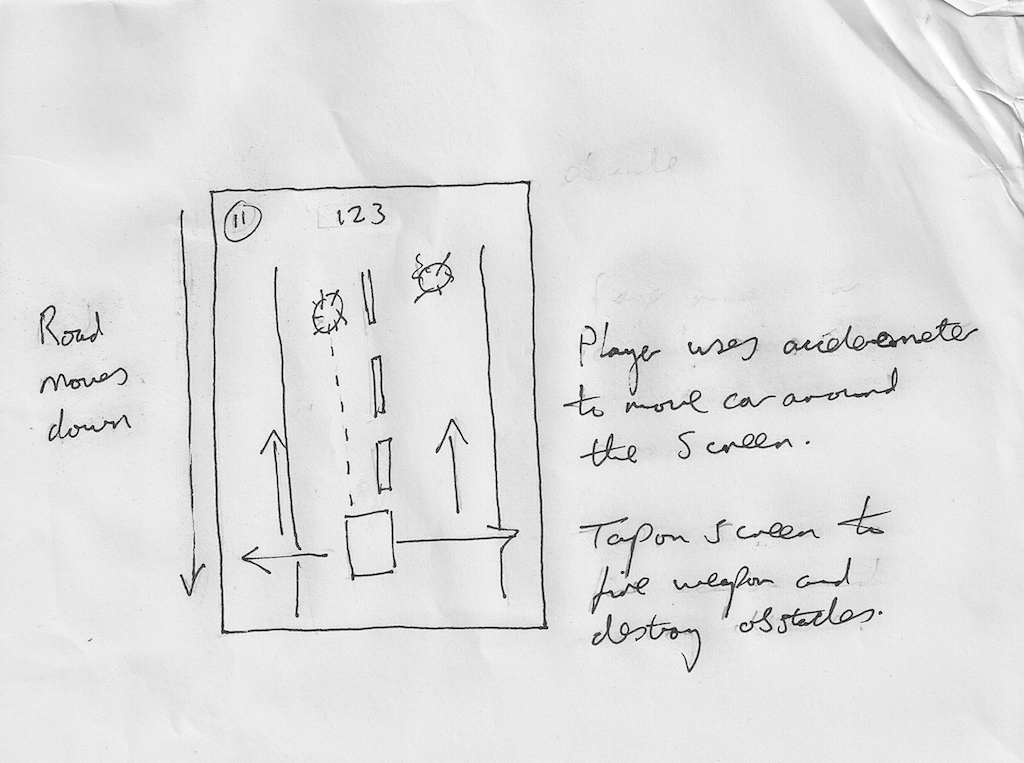 123
Road
moves
down
Player uses accelerometer
to move car around
the screen.
Tap on screen to
fire weapon and
destroy obstacles.